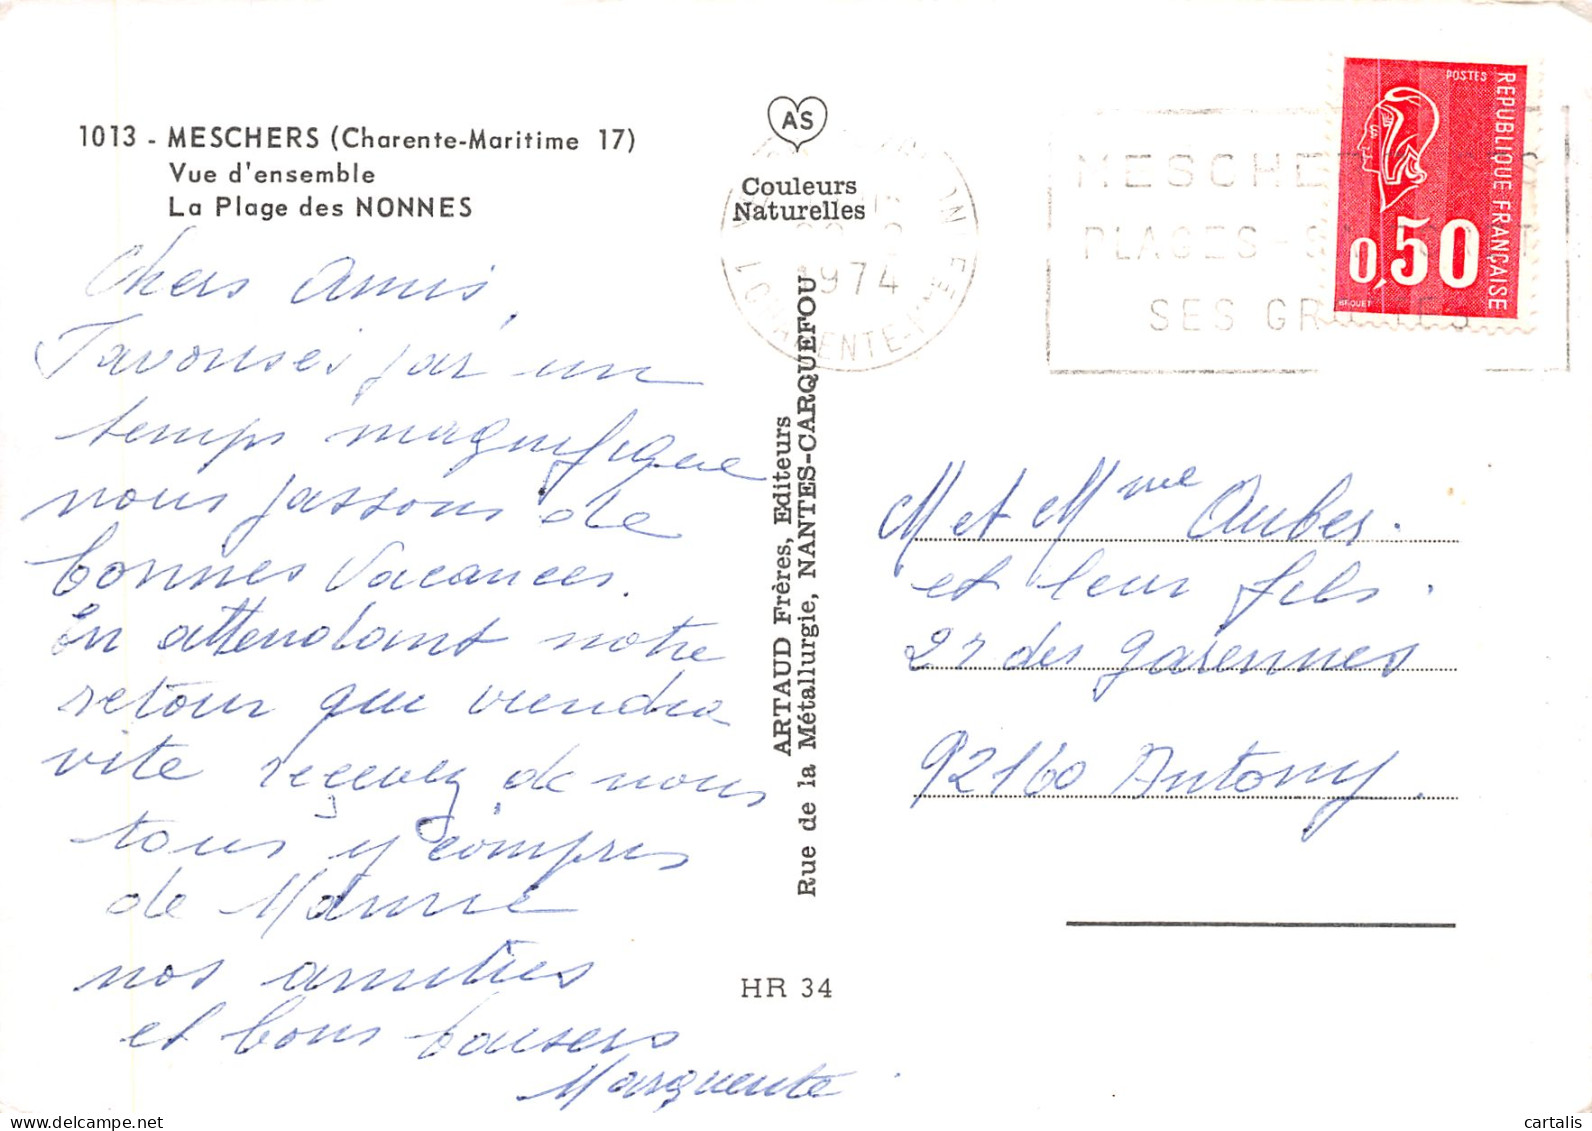 1013 - MESCHERS (Charente-Maritime 17)
Vue d'ensemble
La Plage des NONNES
Chers Amis,
Favorisés par un
temps magnifique
nous passons de
bonnes Vacances.
En attendant notre
retour qui viendra
vite recevez de nous
tous y compris
de Mamie
nos amitiés
et bons baisers
Marguerite
AS
Couleurs
Naturelles
1974
ARTAUD Frères, Editeurs
Rue de la Métallurgie, NANTES-CARQUEFOU
HR 34
MESCHE
PLAGES - S
SES GR TES
POSTES
REPUBLIQUE FRANÇAISE
0,50
BEQUET
M et Mme Auber.
et leur fils.
2 r des garennes
92160 Antony.
© delcampe.net
cartalis